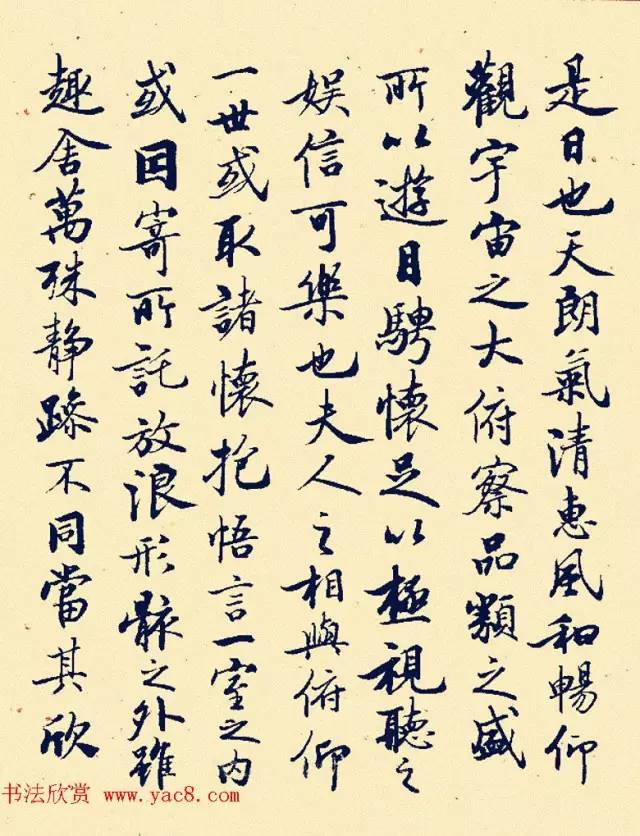 是日也天朗氣清惠風和暢仰
觀宇宙之大俯察品類之盛
所以遊目騁懷足以極視聽之
娛信可樂也夫人之相與俯仰
一世或取諸懷抱悟言一室之內
或因寄所託放浪形骸之外雖
趣舍萬殊静躁不同當其欣
书法欣赏 www.yac8.com